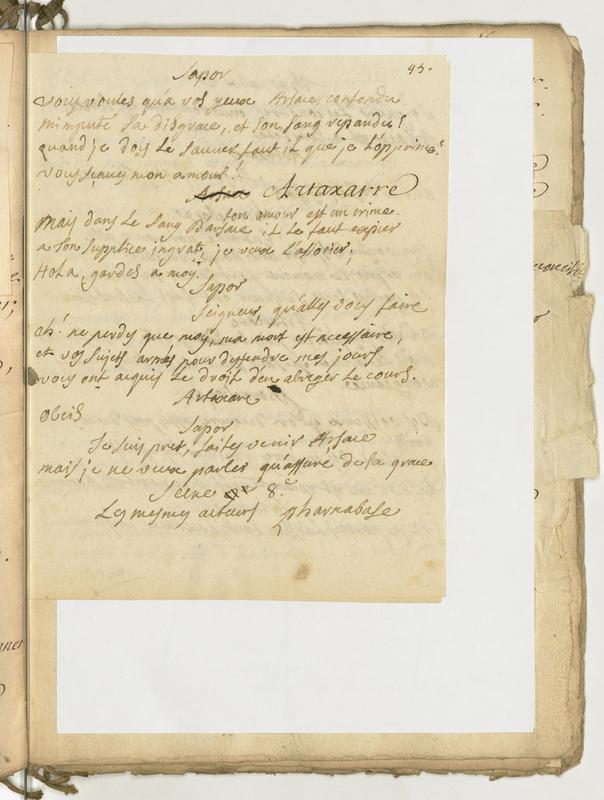 45.
Sapor
Vous voules qu'a vos yeux Arsace confondu
m'impute sa disgrace, et son sang repandu!
quand je dois le sauver faut il que je l'opprime?
Vous sçaves mon amour.
Artaxarre
ton amour est un crime.
Mais dans le sang d'arsace il le faut expier
a son supplice ingrat, je veux t'associer.
Hola, gardes a moy.
Sapor
Seigneur, qu'alles vous faire
ah! ne perdes que moy, ma mort est necessaire,
et vos sujets armés pour deffendre mes jours
vous ont acquis le droit d'en abreger le cours.
Artaxare
obeis
Sapor
Je suis pret, faites venir Arsace
mais je ne veux parler qu'assuré de sa grace
Scene 8.e
Les mesmes acteurs Pharnabase